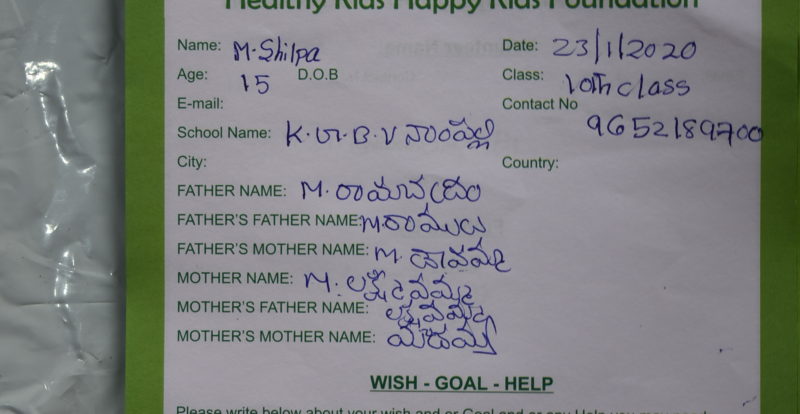 Healthy Kids Happy Kids Foundation
Name: M. Shilpa Date: 23/1/2020
Age: 15 D.O.B Class: 10th class
E-mail: Contact No
School Name: K.G.B.V నాంపల్లి 9652189700
City: Country:
FATHER NAME: M.
FATHER'S FATHER NAME: M రాములు
FATHER'S MOTHER NAME: M.
MOTHER NAME: M.
MOTHER'S FATHER NAME:
MOTHER'S MOTHER NAME:
WISH - GOAL - HELP
Please write below about your wish and or Goal and or any Help you may